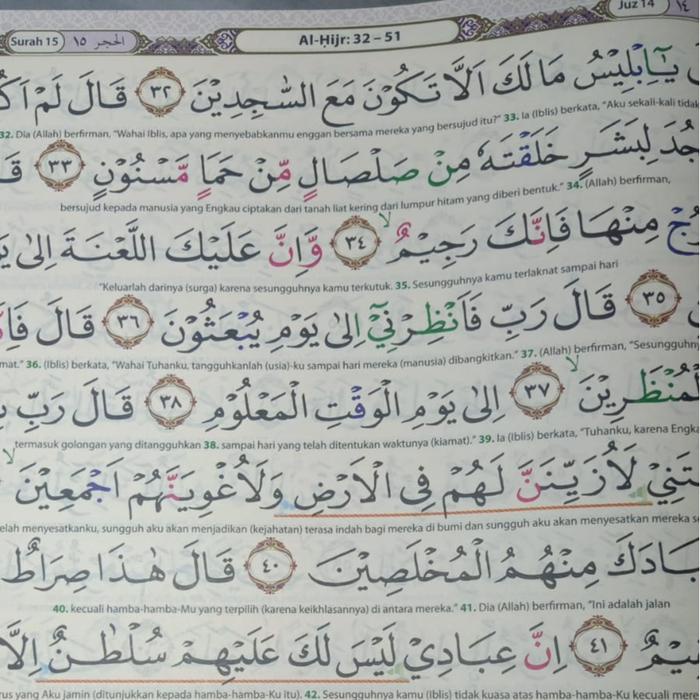 Juz 14 ١٤
Surah 15 الحجر ١٥ Al-Ḥijr: 32 – 51
يٰٓاِبْلِيْسُ مَا لَكَ اَلَّا تَكُوْنَ مَعَ السّٰجِدِيْنَ ٣٢ قَالَ لَمْ
32. Dia (Allah) berfirman, "Wahai Iblis, apa yang menyebabkanmu enggan bersama mereka yang bersujud itu?" 33. Ia (Iblis) berkata, "Aku sekali-kali tidak
لِبَشَرٍ خَلَقْتَهٗ مِنْ صَلْصَالٍ مِّنْ حَمَاٍ مَّسْنُوْنٍ ٣٣
bersujud kepada manusia yang Engkau ciptakan dari tanah liat kering dari lumpur hitam yang diberi bentuk." 34. (Allah) berfirman,
مِنْهَا فَاِنَّكَ رَجِيْمٌ ٣٤ وَّاِنَّ عَلَيْكَ اللَّعْنَةَ اِلٰى
"Keluarlah darinya (surga) karena sesungguhnya kamu terkutuk. 35. Sesungguhnya kamu terlaknat sampai hari
٣٥ قَالَ رَبِّ فَاَنْظِرْنِيْٓ اِلٰى يَوْمِ يُبْعَثُوْنَ ٣٦ قَالَ
mat." 36. (Iblis) berkata, "Wahai Tuhanku, tangguhkanlah (usia)-ku sampai hari mereka (manusia) dibangkitkan." 37. (Allah) berfirman, "Sesungguhn
لْمُنْظَرِيْنَ ٣٧ اِلٰى يَوْمِ الْوَقْتِ الْمَعْلُوْمِ ٣٨ قَالَ رَبِّ
termasuk golongan yang ditangguhkan 38. sampai hari yang telah ditentukan waktunya (kiamat)." 39. Ia (Iblis) berkata, "Tuhanku, karena Engka
تَنِيْ لَاُزَيِّنَنَّ لَهُمْ فِى الْاَرْضِ وَلَاُغْوِيَنَّهُمْ اَجْمَعِيْنَ
elah menyesatkanku, sungguh aku akan menjadikan (kejahatan) terasa indah bagi mereka di bumi dan sungguh aku akan menyesatkan mereka s
بَادَكَ مِنْهُمُ الْمُخْلَصِيْنَ ٤٠ قَالَ هٰذَا صِرَاطٌ
40. kecuali hamba-hamba-Mu yang terpilih (karena keikhlasannya) di antara mereka." 41. Dia (Allah) berfirman, "Ini adalah jalan
يْمٌ ٤١ اِنَّ عِبَادِيْ لَيْسَ لَكَ عَلَيْهِمْ سُلْطٰنٌ اِلَّا
rus yang Aku jamin (ditunjukkan kepada hamba-hamba-Ku itu). 42. Sesungguhnya kamu (Iblis) tidak kuasa atas hamba-hamba-Ku kecuali mere